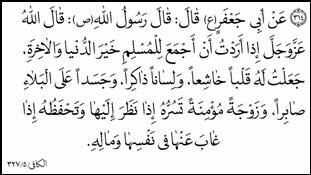 (٣١٤) عَنْ أَبِي جَعْفَرٍ(ع) قَالَ: قَالَ رَسُولُ اللهِ(ص): قَالَ اللهُ
عَزَّوَجَلَّ إِذَا أَرَدْتُ أَنْ أَجْمَعَ لِلْمُسْلِمِ خَيْرَ الدُّنْيَا وَالآخِرَةِ.
جَعَلْتُ لَهُ قَلْباً خَاشِعاً، وَلِسَاناً ذَاكِراً، وَجَسَداً عَلَى الْبَلَاءِ
صَابِراً، وَزَوْجَةً مُؤْمِنَةً تَسُرُّهُ إِذَا نَظَرَ إِلَيْهَا وَتَحْفَظُهُ إِذَا
غَابَ عَنْهَا فِي نَفْسِهَا وَمَالِهِ.
الكافي/٥/٣٢٧